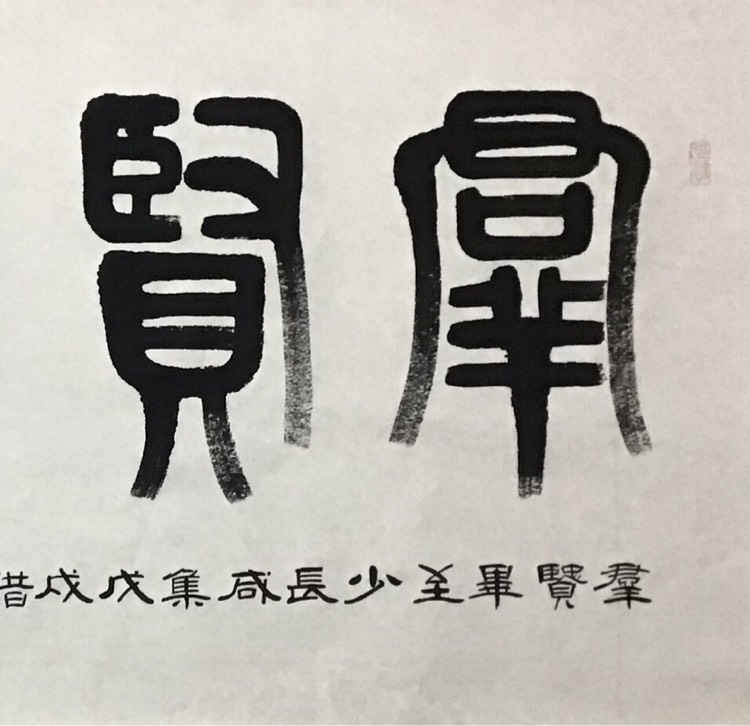 羣賢
羣賢畢至少長咸集戊戌